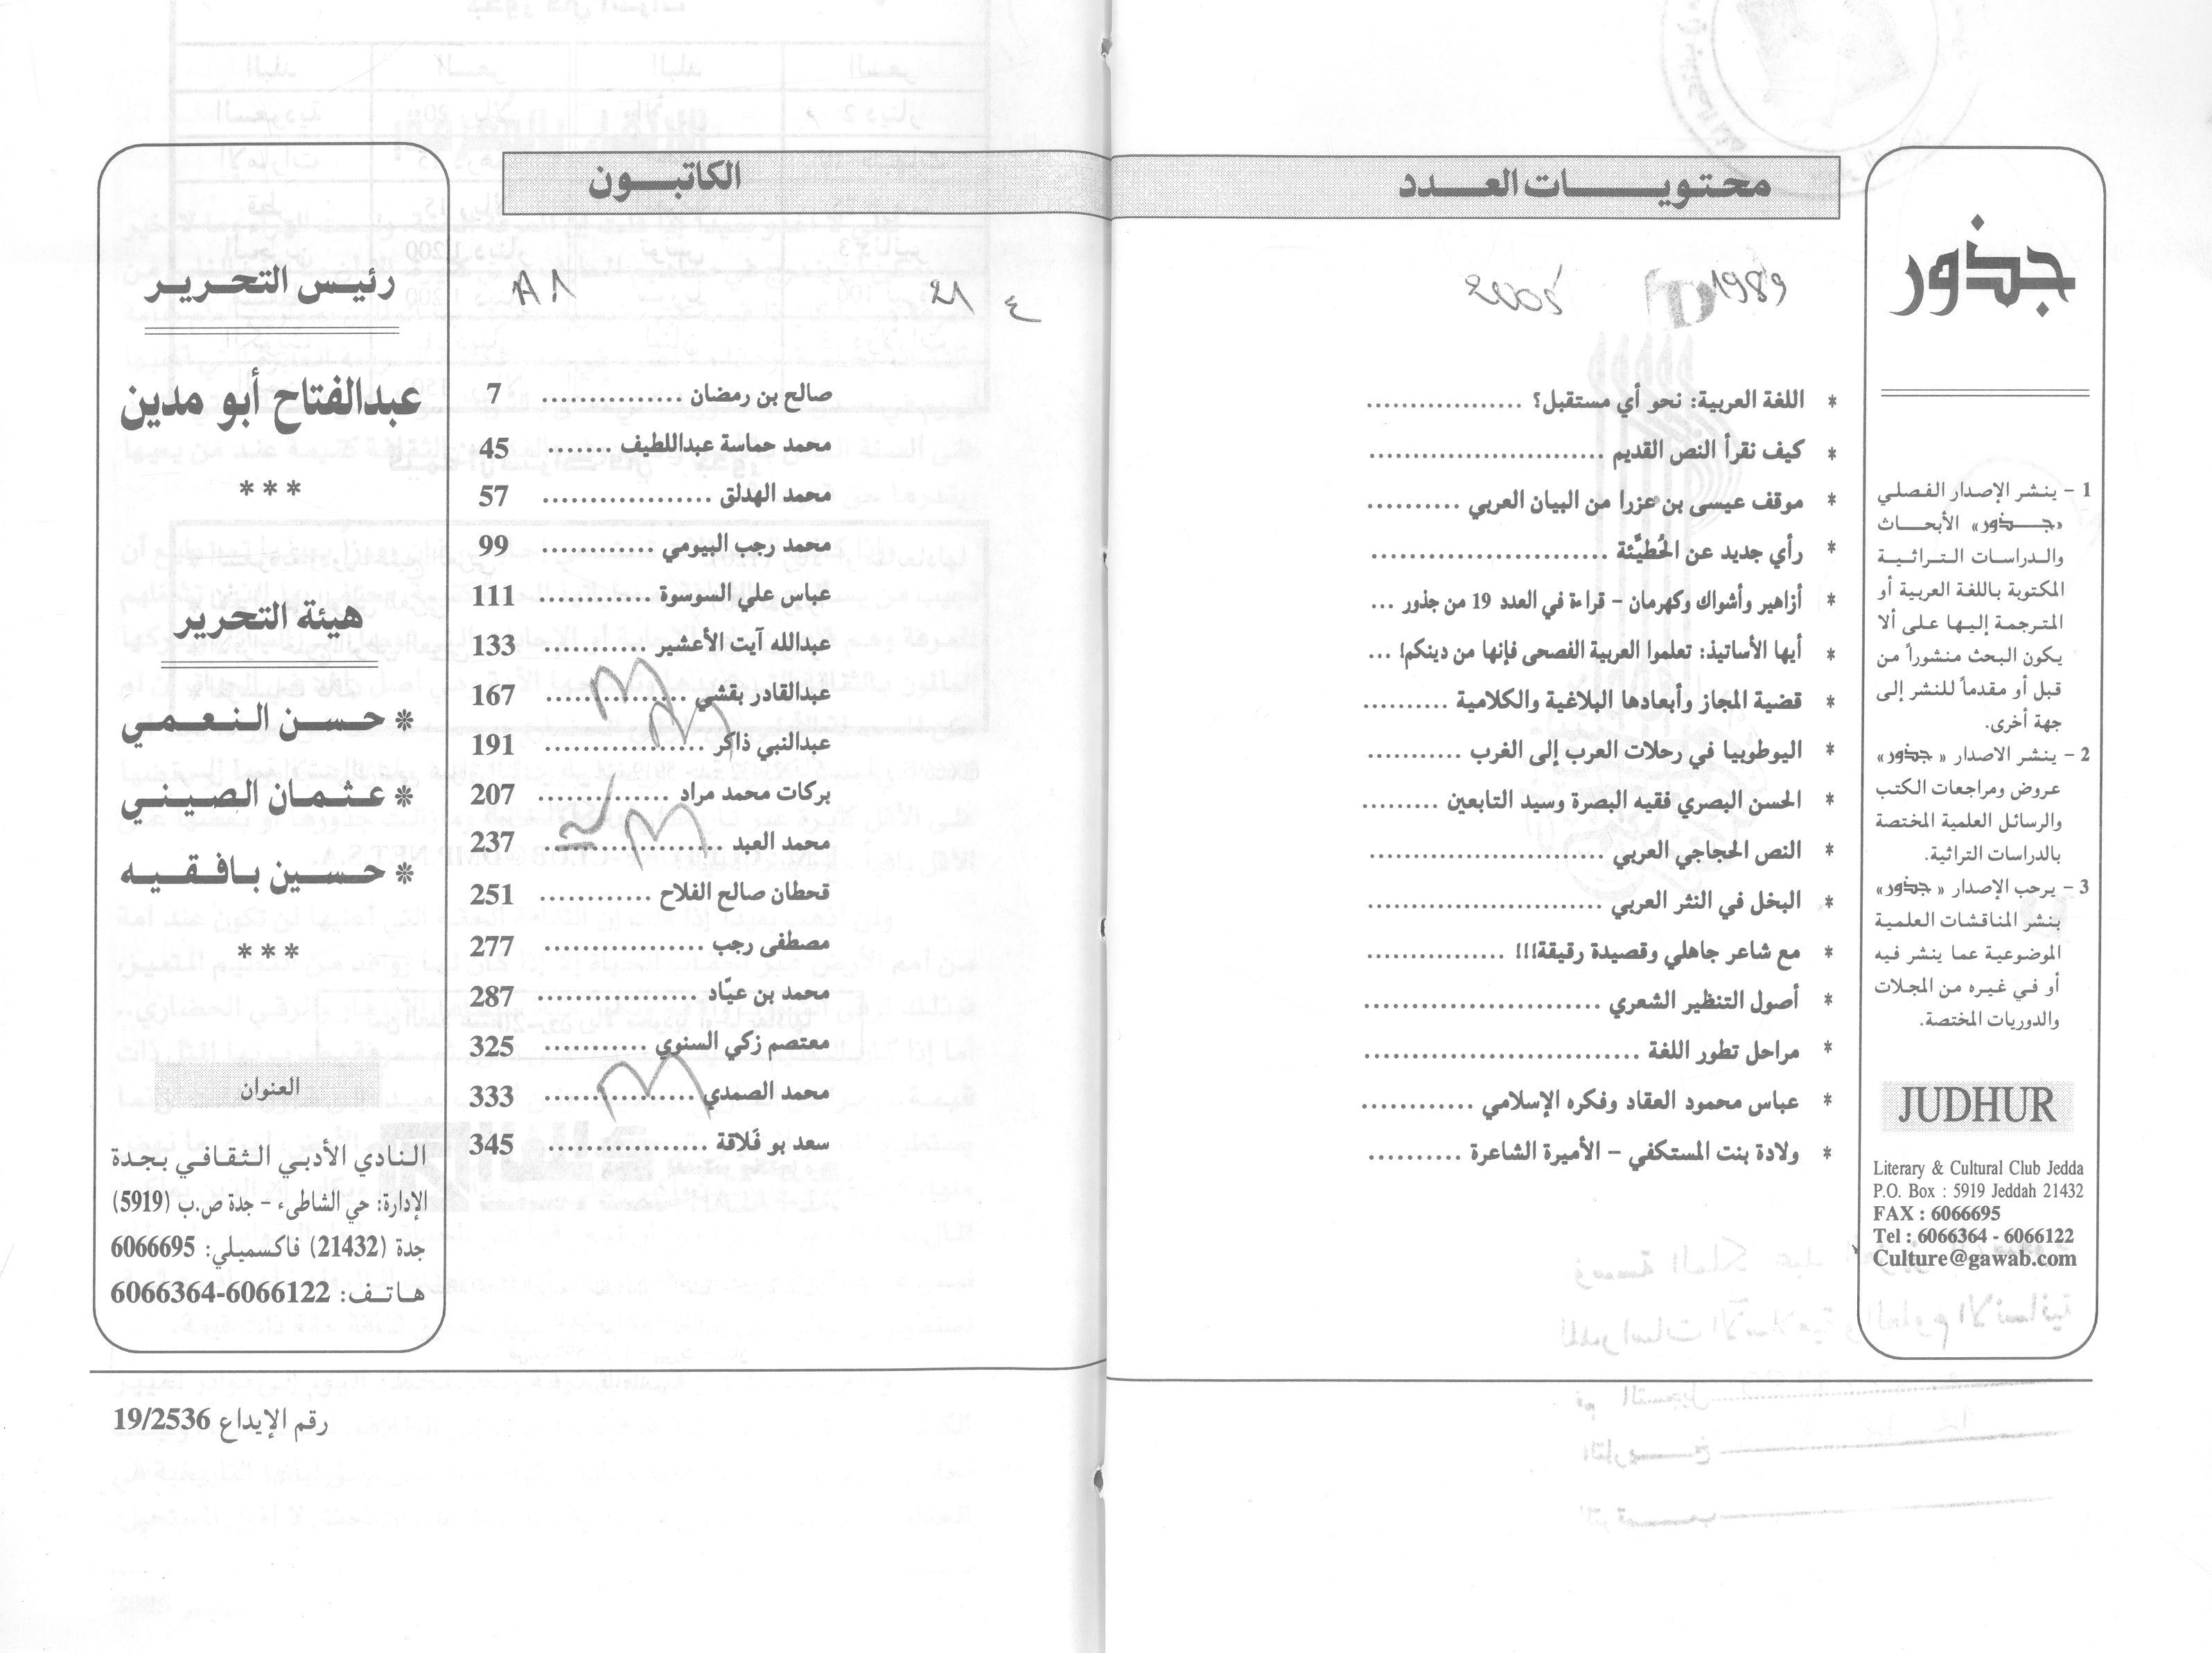 جذور
1 - ينشر الإصدار الفصلي
«جذور» الأبحاث
والدراسات التراثية
المكتوبة باللغة العربية أو
المترجمة إليها على ألا
يكون البحث منشوراً من
قبل أو مقدماً للنشر إلى
جهة أخرى.
2 - ينشر الاصدار «جذور»
عروض ومراجعات الكتب
والرسائل العلمية المختصة
بالدراسات التراثية.
3 - يرحب الإصدار «جذور»
بنشر المناقشات العلمية
الموضوعية عما ينشر فيه
أو في غيره من المجلات
والدوريات المختصة.
JUDHUR
Literary & Cultural Club Jedda
P.O. Box : 5919 Jeddah 21432
FAX : 6066695
Tel : 6066364 - 6066122
Culture@gawab.com
محتويات العدد الكاتبون
* اللغة العربية: نحو أي مستقبل؟ ................. صالح بن رمضان ............... 7
* كيف نقرأ النص القديم ......................... محمد حماسة عبداللطيف ....... 45
* موقف عيسى بن عزرا من البيان العربي .......... محمد الهدلق .................. 57
* رأي جديد عن الحُطيَّئة ......................... محمد رجب البيومي ............ 99
* أزاهير وأشواك وكهرمان - قراءة في العدد 19 من جذور ... عباس علي السوسوة ............ 111
* أيها الأساتيذ: تعلموا العربية الفصحى فإنها من دينكم! ... عبدالله آيت الأعشير ........... 133
* قضية المجاز وأبعادها البلاغية والكلامية .......... عبدالقادر بقشي ............... 167
* اليوطوبيا في رحلات العرب إلى الغرب ............ عبدالنبي ذاكر ................. 191
* الحسن البصري فقيه البصرة وسيد التابعين ......... بركات محمد مراد .............. 207
* النص الحجاجي العربي ......................... محمد العبد ................... 237
* البخل في النثر العربي ......................... قحطان صالح الفلاح ............ 251
* مع شاعر جاهلي وقصيدة رقيقة!!! ............... مصطفى رجب ................. 277
* أصول التنظير الشعري ......................... محمد بن عيّاد ................. 287
* مراحل تطور اللغة ............................. معتصم زكي السنوي ........... 325
* عباس محمود العقاد وفكره الإسلامي ............ محمد الصمدي ................ 333
* ولادة بنت المستكفي - الأميرة الشاعرة .......... سعد بو فَلاقة ................. 345
رئيس التحرير
عبدالفتاح أبو مدين
***
هيئة التحرير
* حسن النعمي
* عثمان الصيني
* حسين بافقيه
***
العنوان
النادي الأدبي الثقافي بجدة
الإدارة: حي الشاطىء - جدة ص.ب (5919)
جدة (21432) فاكسميلي: 6066695
هاتف: 6066122-6066364
رقم الإيداع 19/2536